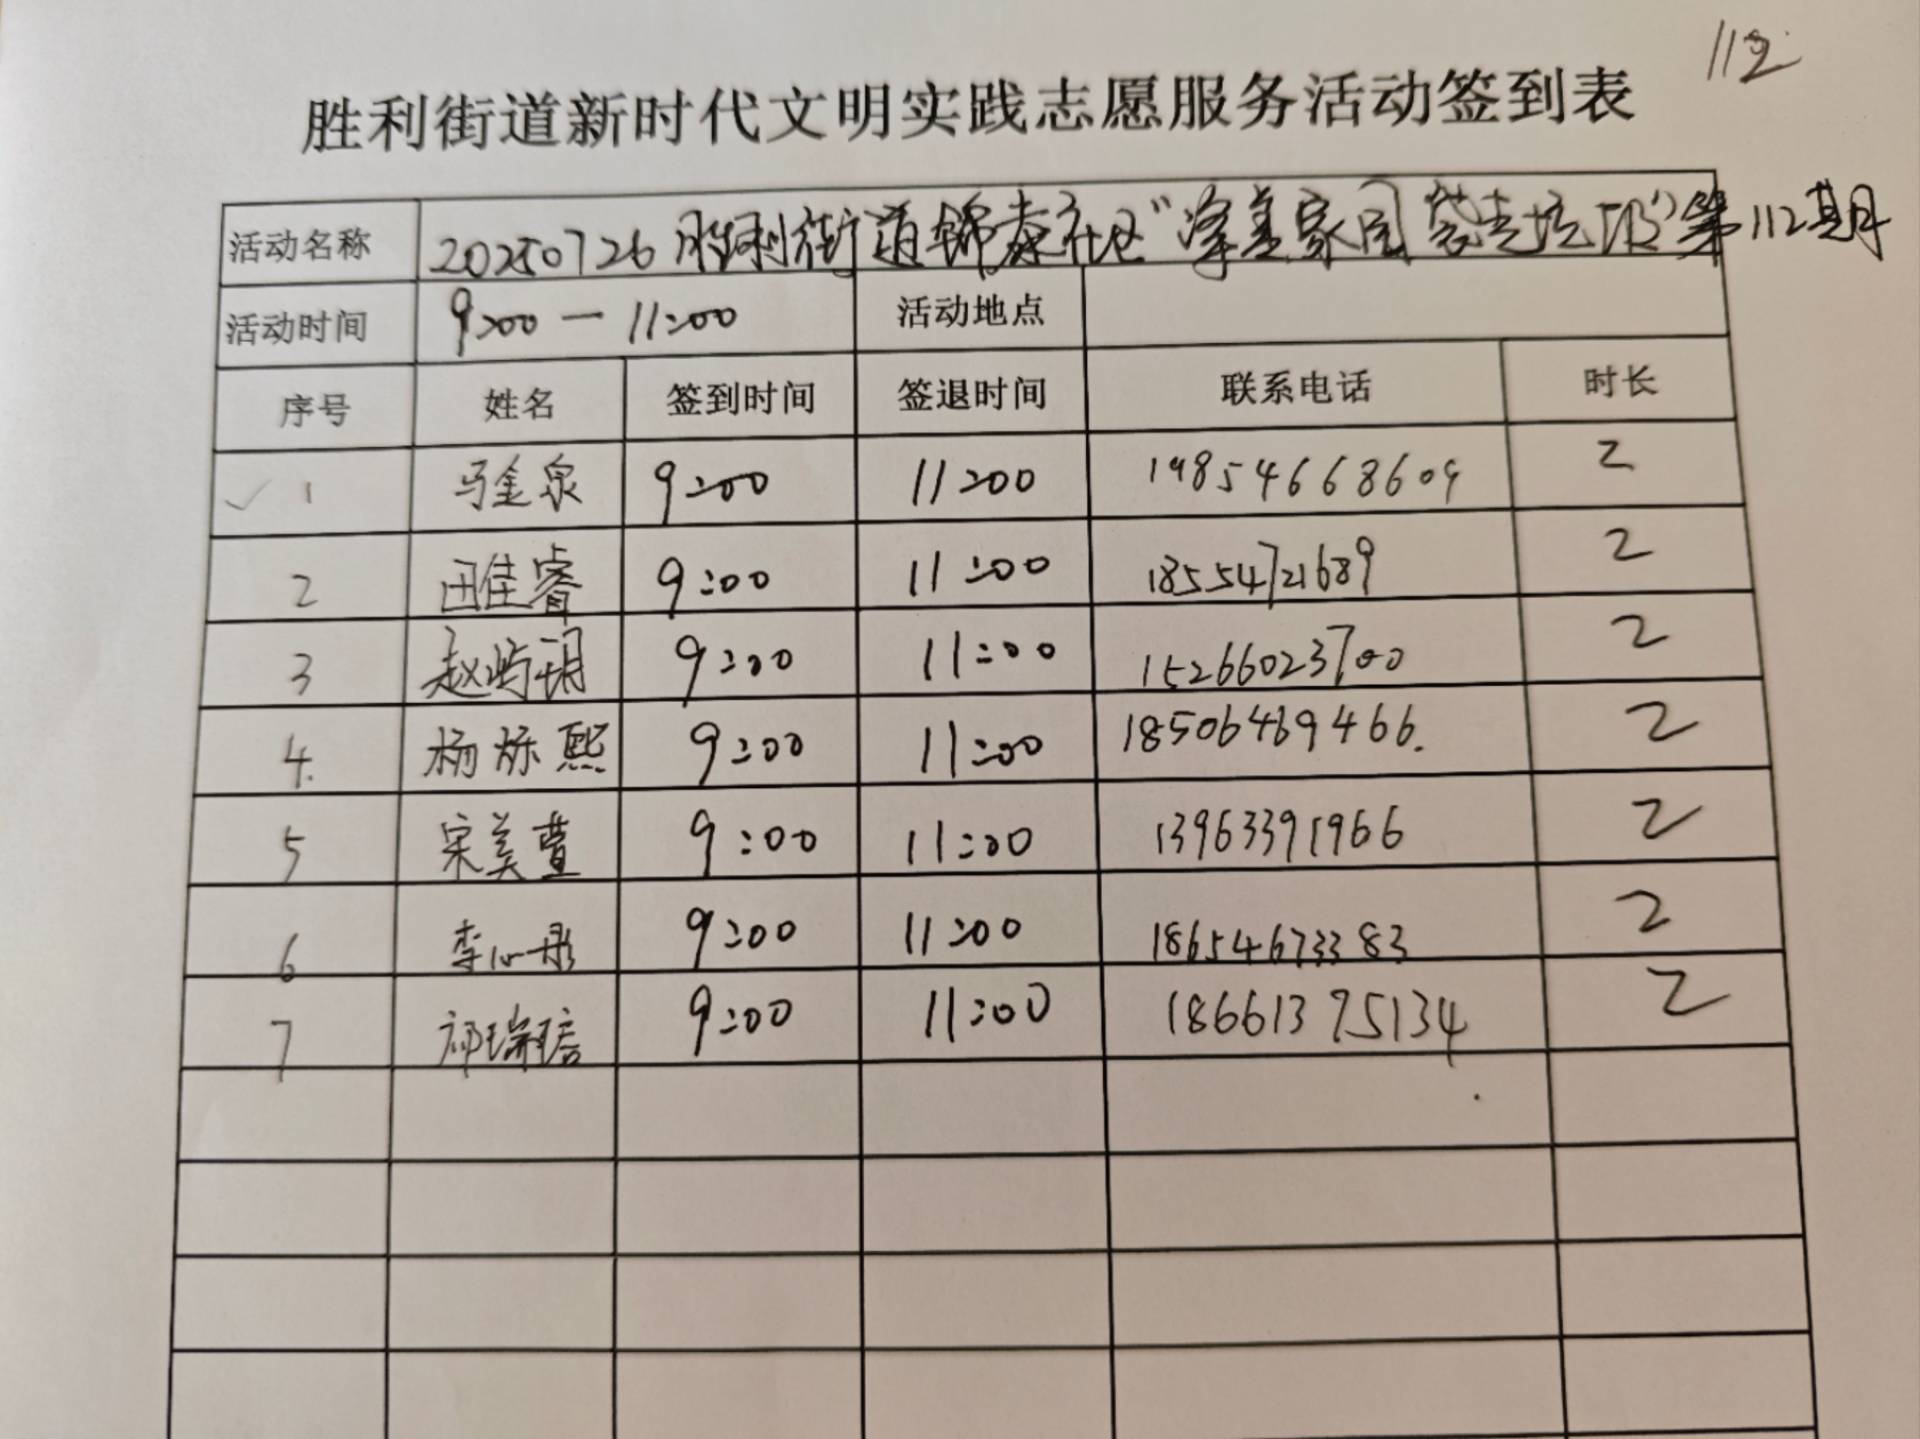 112
胜利街道新时代文明实践志愿服务活动签到表
活动名称 20250726胜利街道锦泰社区“净美家园 袋走垃圾”第112期
活动时间 9:00-11:00 活动地点
序号 姓名 签到时间 签退时间 联系电话 时长
✓ 1 马金泉 9:00 11:00 19854668609 2
2 田佳睿 9:00 11:00 18554721689 2
3 赵屿玥 9:00 11:00 15266023700 2
4. 杨烁熙 9:00 11:00 18506469466. 2
5 宋美萱 9:00 11:00 13963391966 2
6 李心彤 9:00 11:00 18654673383 2
7 祁瑞 9:00 11:00 18661395134 2